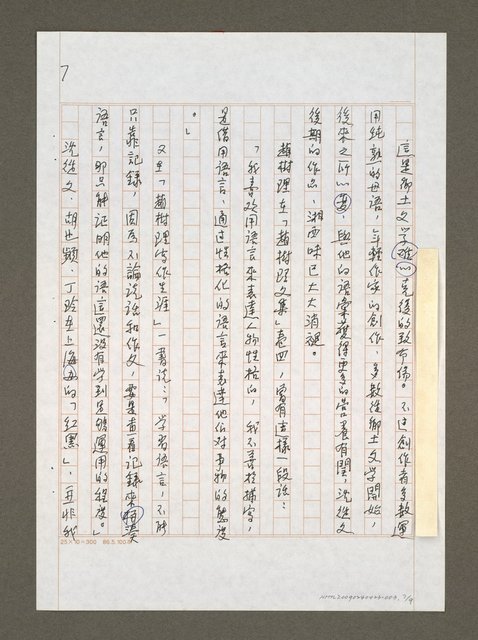 7
這是鄉土文學難以克復的致命傷。不過創作者多數運
用純熟的母語，年輕作家的創作，多數從鄉土文學開始，
後來之所以，與他的語彙獲得更多的營養有關，沈從文
後期的作品，湘西味已大大消褪。
趙樹理在「趙樹理文集」卷四，曾有這樣一段說：
「我喜歡用語言來表達人物性格的，我不善於描寫，
是借用語言，通過性格化的語言來表達他们对事物的態度
。」
又在「趙樹理寫作生涯」一書說：「學習語言，不能
只靠記錄，因為不論說話和作文，要是查看記錄來拼湊
語言，那只能証明他的語言還沒有学到足夠運用的程度。」
沈從文、胡也頻、丁玲在上海办的「紅黑」，再非我
25×10=300 86.5.100本
NMTL20090260426-008, 7/9